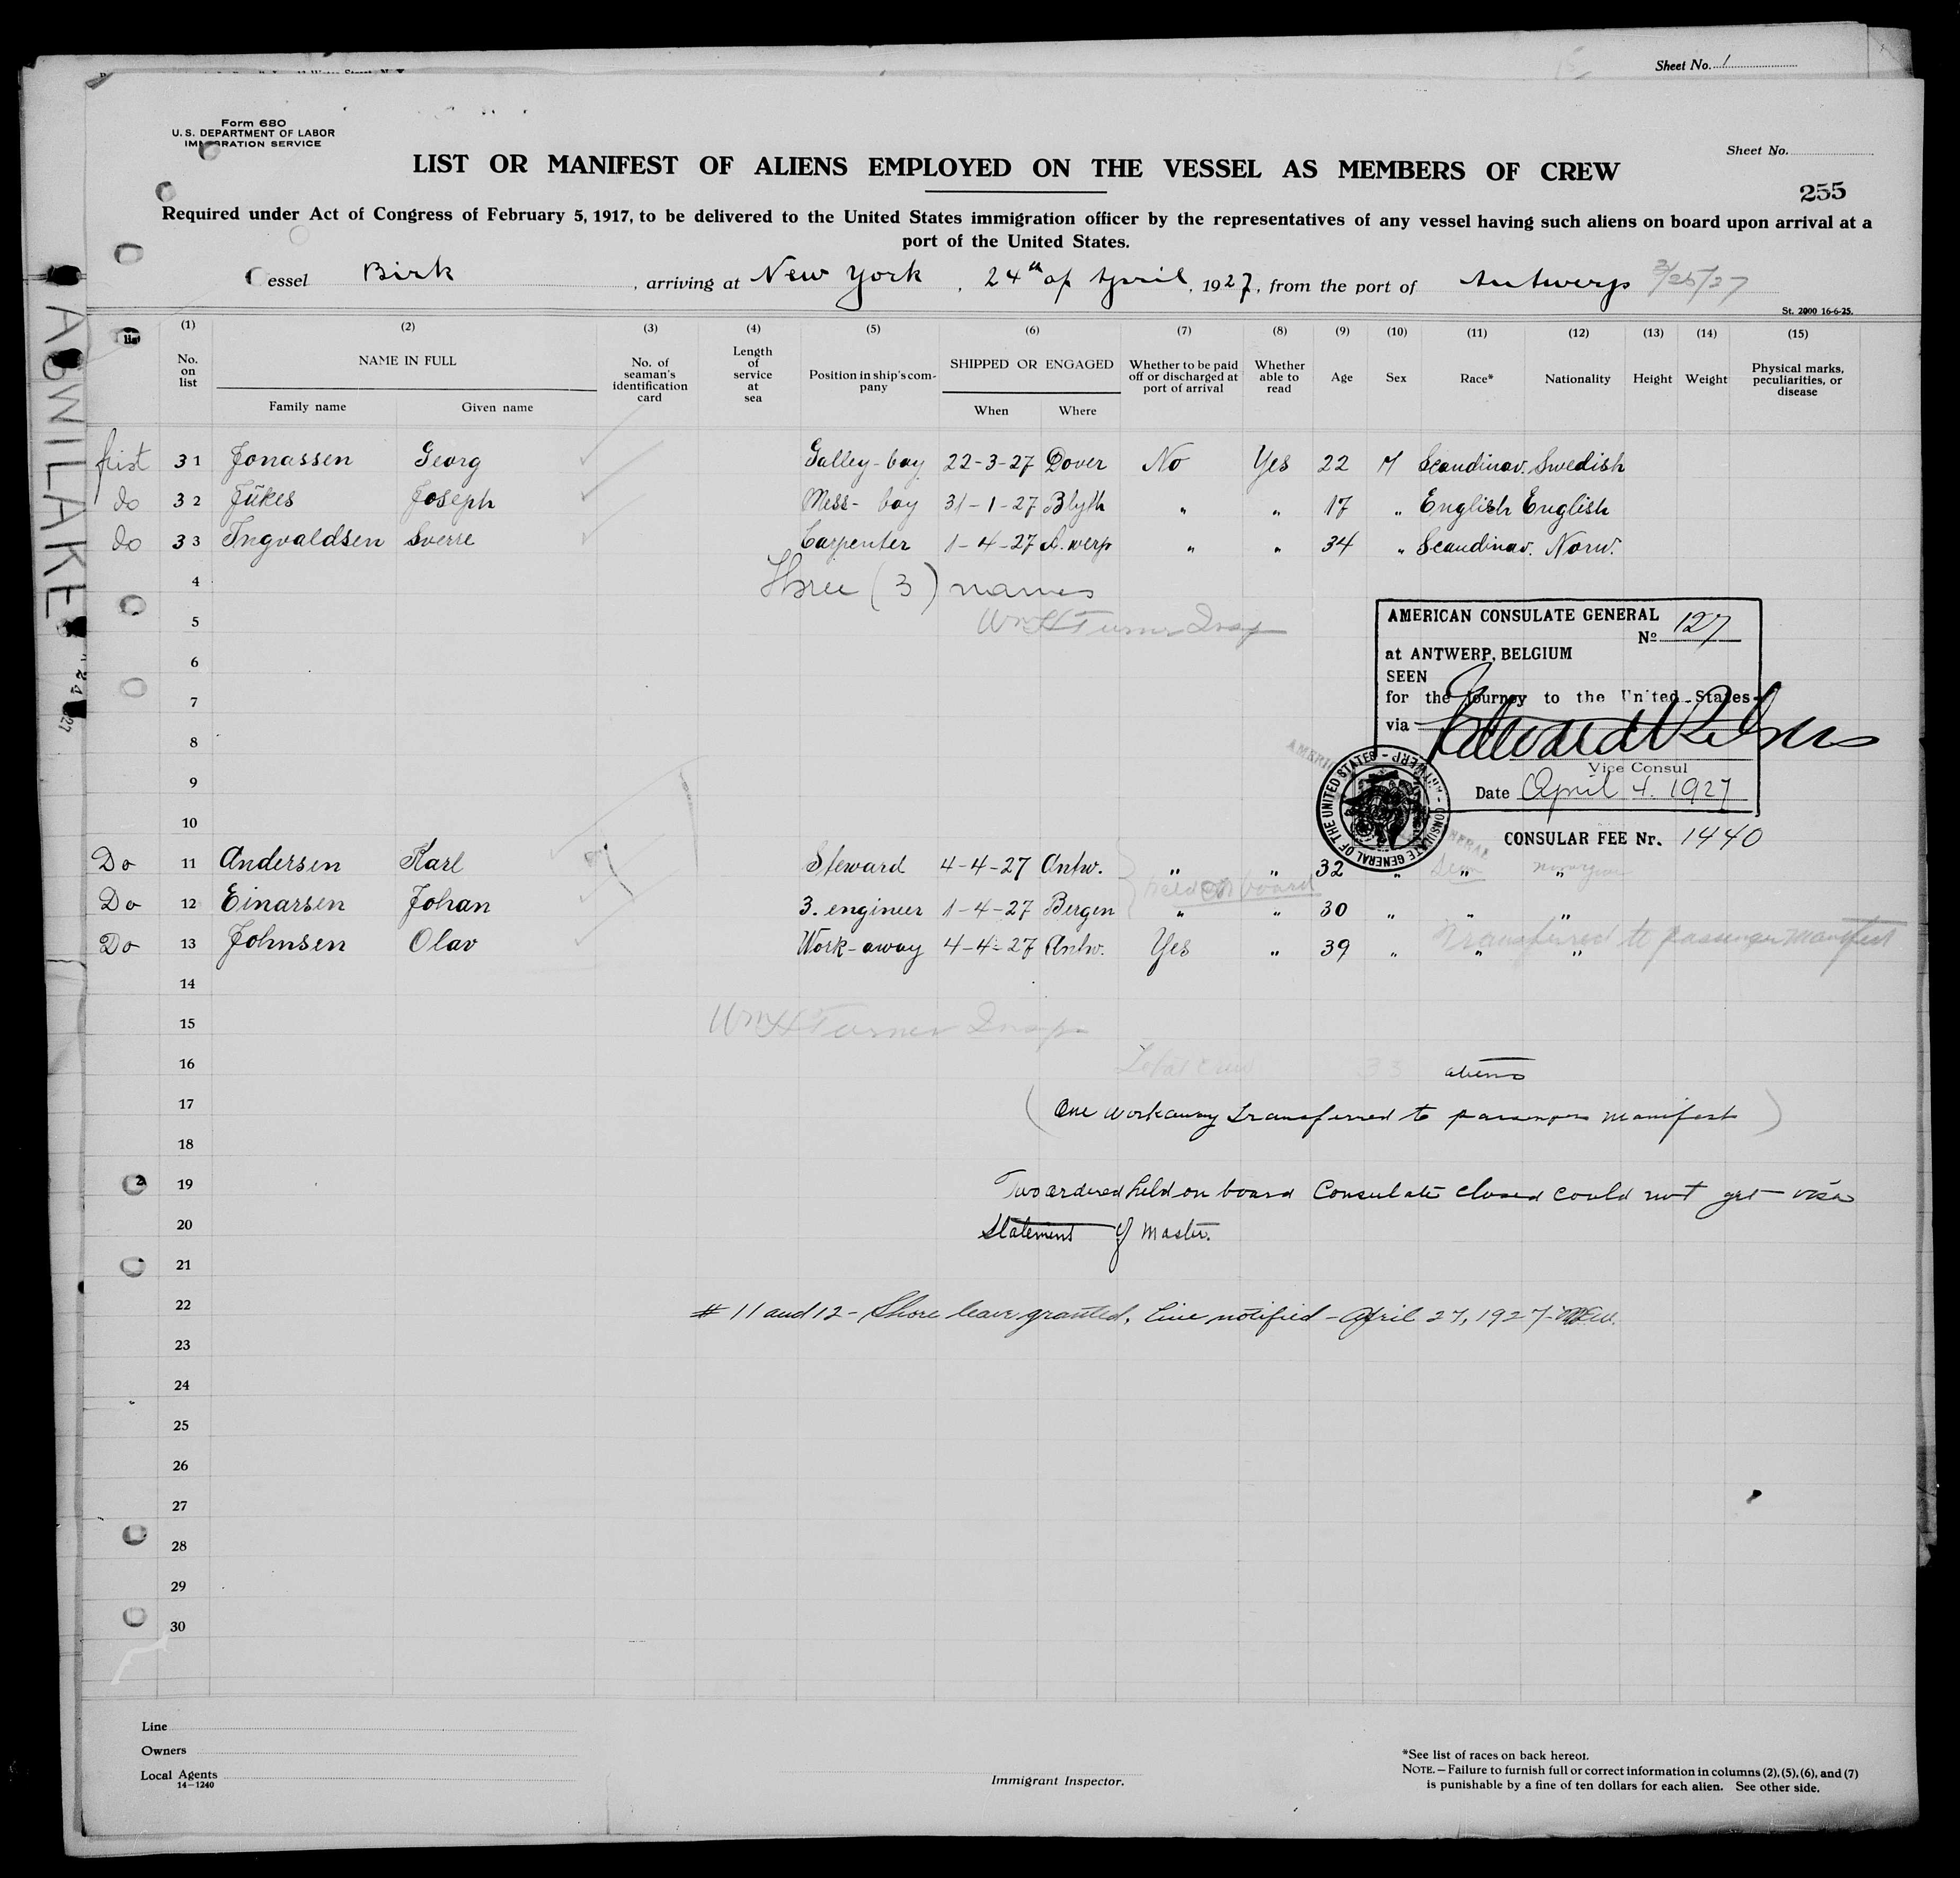 Sheet No. 1
Form 680
U. S. DEPARTMENT OF LABOR
IMMIGRATION SERVICE
Sheet No.
LIST OR MANIFEST OF ALIENS EMPLOYED ON THE VESSEL AS MEMBERS OF CREW
255
Required under Act of Congress of February 5, 1917, to be delivered to the United States immigration officer by the representatives of any vessel having such aliens on board upon arrival at a
port of the United States.
essel Birk, arriving at New York, 24th of April, 1927, from the port of Antwerp 3/25/27
St. 2000 16-6-25.
(1) (2) (3) (4) (5) (6) (7) (8) (9) (10) (11) (12) (13) (14) (15)
No. on list NAME IN FULL Family name Given name No. of seaman's identification card Length of service at sea Position in ship's company SHIPPED OR ENGAGED When Where Whether to be paid off or discharged at port of arrival Whether able to read Age Sex Race* Nationality Height Weight Physical marks, peculiarities, or disease
first 31 Jonassen Georg Galley-boy 22-3-27 Dover No Yes 22 M Scandinav. Swedish
do 32 Jükes Joseph Mess-boy 31-1-27 Blyth " " 17 " English English
do 33 Ingvaldsen Sverre Carpenter 1-4-27 A.werp " " 34 " Scandinav. Norw.
4 Three (3) names
5 Wm H Turner Insp
6
7
8
9
10
AMERICAN CONSULATE GENERAL
No 127
at ANTWERP, BELGIUM
SEEN
for the journey to the United States
via
Vice Consul
Date April 4. 1927
CONSULATE GENERAL OF THE UNITED STATES - ANTWERP -
CONSULAR FEE Nr. 1440
Do 11 Andersen Karl Steward 4-4-27 Antw. " " 32 " "
held on board
Do 12 Einarsen Johan 3. engineer 1-4-27 Bergen " " 30 " " "
Transferred to passenger manifest
Do 13 Johnsen Olav Work-away 4-4-27 Antw. Yes " 39 " " "
14
15 Wm H Turner Insp
16 Total crew 33 aliens
17 (One workaway transferred to passenger manifest)
18
19 Two ordered held on board Consulate closed could not get visa
20 Statement of Master.
21
22 # 11 and 12 - Shore leave granted, Line notified - April 27, 1927
23
24
25
26
27
28
29
30
Line
Owners
Local Agents
14-1240
Immigrant Inspector.
*See list of races on back hereof.
NOTE.—Failure to furnish full or correct information in columns (2), (5), (6), and (7)
is punishable by a fine of ten dollars for each alien. See other side.